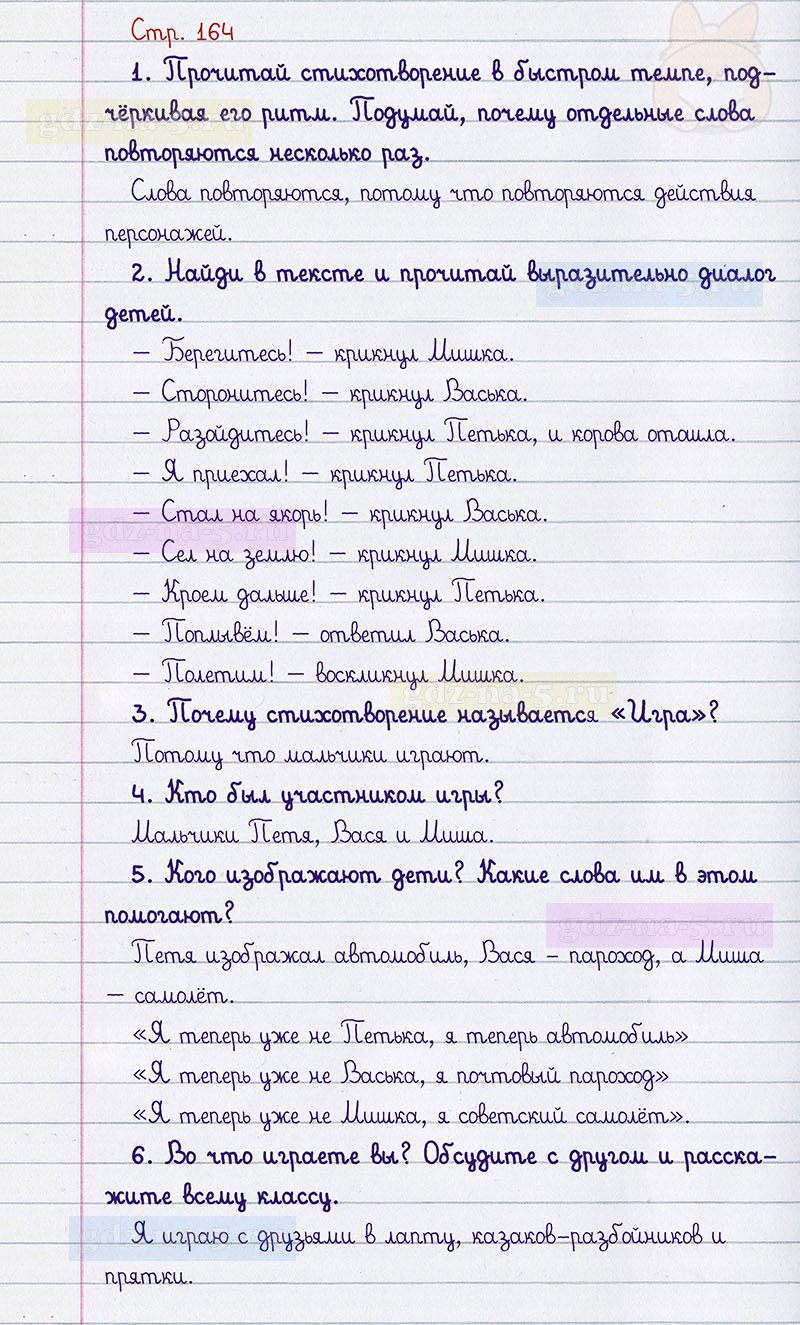 Стр. 164
1. Прочитай стихотворение в быстром темпе, под-
чёркивая его ритм. Подумай, почему отдельные слова
повторяются несколько раз.
Слова повторяются, потому что повторяются действия
персонажей.
2. Найди в тексте и прочитай выразительно диалог
детей.
— Берегитесь! — крикнул Мишка.
— Сторонитесь! — крикнул Васька.
— Разойдитесь! — крикнул Петька, и корова отошла.
— Я приехал! — крикнул Петька.
— Стал на якорь! — крикнул Васька.
— Сел на землю! — крикнул Мишка.
— Кроем дальше! — крикнул Петька.
— Поплывём! — ответил Васька.
— Полетим! — воскликнул Мишка.
3. Почему стихотворение называется «Игра»?
Потому что мальчики играют.
4. Кто был участником игры?
Мальчики Петя, Вася и Миша.
5. Кого изображают дети? Какие слова им в этом
помогают?
Петя изображал автомобиль, Вася – пароход, а Миша
– самолёт.
«Я теперь уже не Петька, я теперь автомобиль»
«Я теперь уже не Васька, я почтовый пароход»
«Я теперь уже не Мишка, я советский самолёт».
6. Во что играете вы? Обсудите с другом и расска-
жите всему классу.
Я играю с друзьями в лапту, казаков-разбойников и
прятки.
gdz-na-5.ru
gdz-na-5.ru
gdz-na-5.ru
gdz-na-5.ru
gdz-na-5.ru
gdz-na-5.ru